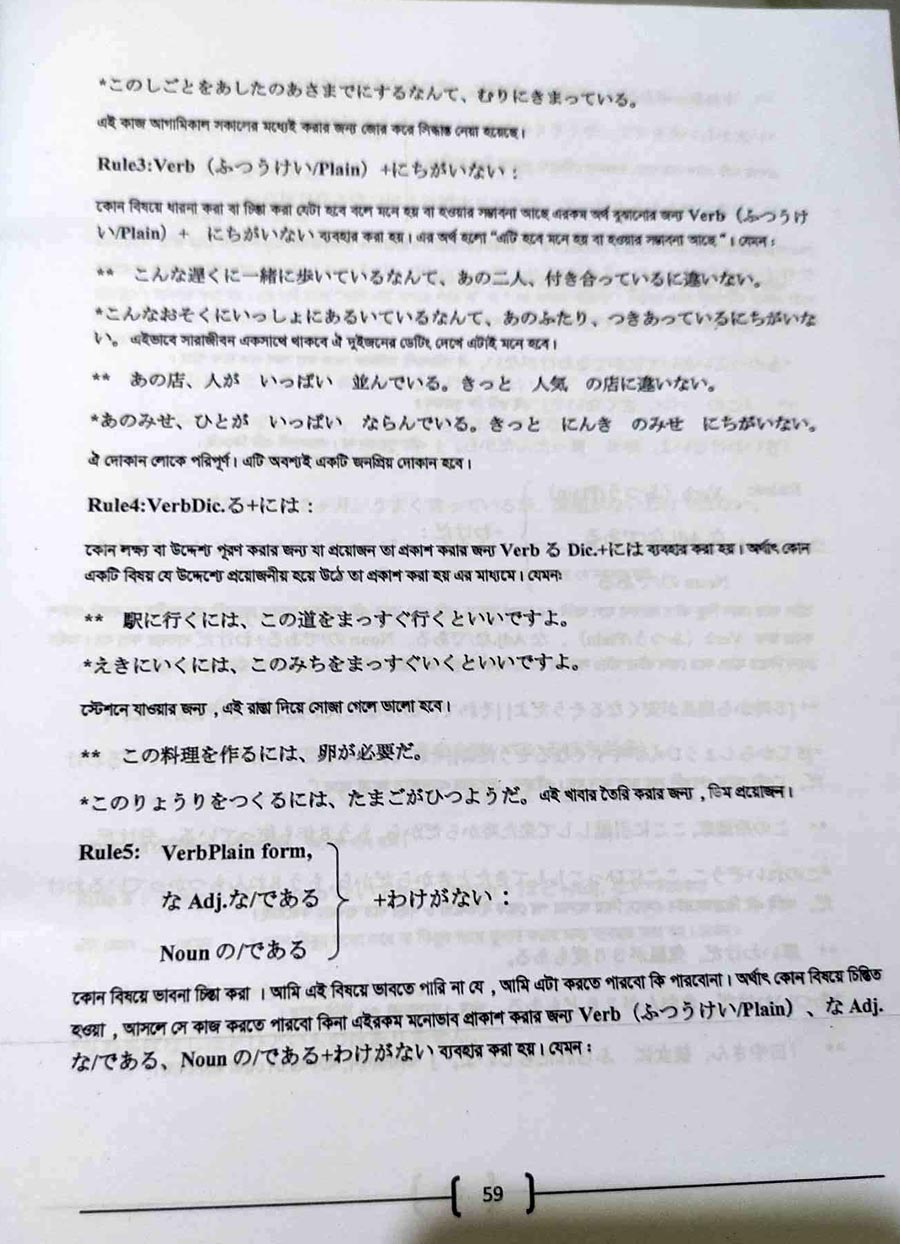 *このしごとをあしたのあさまでにするなんて、むりにきまっている。
এই কাজ আগামিকাল সকালের মধ্যেই করার জন্য জোর করে সিদ্ধান্ত নেয়া হয়েছে।
Rule3:Verb（ふつうけい/Plain）+にちがいない :
কোন বিষয়ে ধারনা করা বা চিন্তা করা যেটা হবে বলে মনে হয় বা হওয়ার সম্ভাবনা আছে এরকম অর্থ বুঝানোর জন্য Verb（ふつうけ
い/Plain）+ にちがいない ব্যবহার করা হয়। এর অর্থ হলো "এটি হবে মনে হয় বা হওয়ার সম্ভাবনা আছে"। যেমন :
** こんな遅くに一緒に歩いているなんて、あの二人、付き合っているに違いない。
*こんなおそくにいっしょにあるいているなんて、あのふたり、つきあっているにちがいな
い。 এইভাবে সারাজীবন একসাথে থাকবে ঐ দুইজনের ডেটিং দেখে এটাই মনে হবে।
** あの店、人が いっぱい 並んでいる。きっと 人気 の店に違いない。
*あのみせ、ひとが いっぱい ならんでいる。きっと にんき のみせ にちがいない。
ঐ দোকান লোকে পরিপূর্ণ। এটি অবশ্যই একটি জনপ্রিয় দোকান হবে।
Rule4:VerbDic.る+には :
কোন লক্ষ্য বা উদ্দেশ্য পূরণ করার জন্য যা প্রয়োজন তা প্রকাশ করার জন্য Verb る Dic.+には ব্যবহার করা হয়। অর্থাৎ কোন
একটি বিষয় যে উদ্দেশ্যে প্রয়োজনীয় হয়ে উঠে তা প্রকাশ করা হয় এর মাধ্যমে। যেমনঃ
** 駅に行くには、この道をまっすぐ行くといいですよ。
*えきにいくには、このみちをまっすぐいくといいですよ。
স্টেশনে যাওয়ার জন্য , এই রাস্তা দিয়ে সোজা গেলে ভালো হবে।
** この料理を作るには、卵が必要だ。
*このりょうりをつくるには、たまごがひつようだ。এই খাবার তৈরি করার জন্য , ডিম প্রয়োজন।
Rule5: VerbPlain form,
な Adj.な/である +わけがない :
Noun の/である
কোন বিষয়ে ভাবনা চিন্তা করা । আমি এই বিষয়ে ভাবতে পারি না যে , আমি এটা করতে পারবো কি পারবোনা। অর্থাৎ কোন বিষয়ে চিন্তিত
হওয়া , আসলে সে কাজ করতে পারবো কিনা এইরকম মনোভাব প্রাকাশ করার জন্য Verb（ふつうけい/Plain）、な Adj.
な/である、Noun の/である+わけがない ব্যবহার করা হয়। যেমন :
59